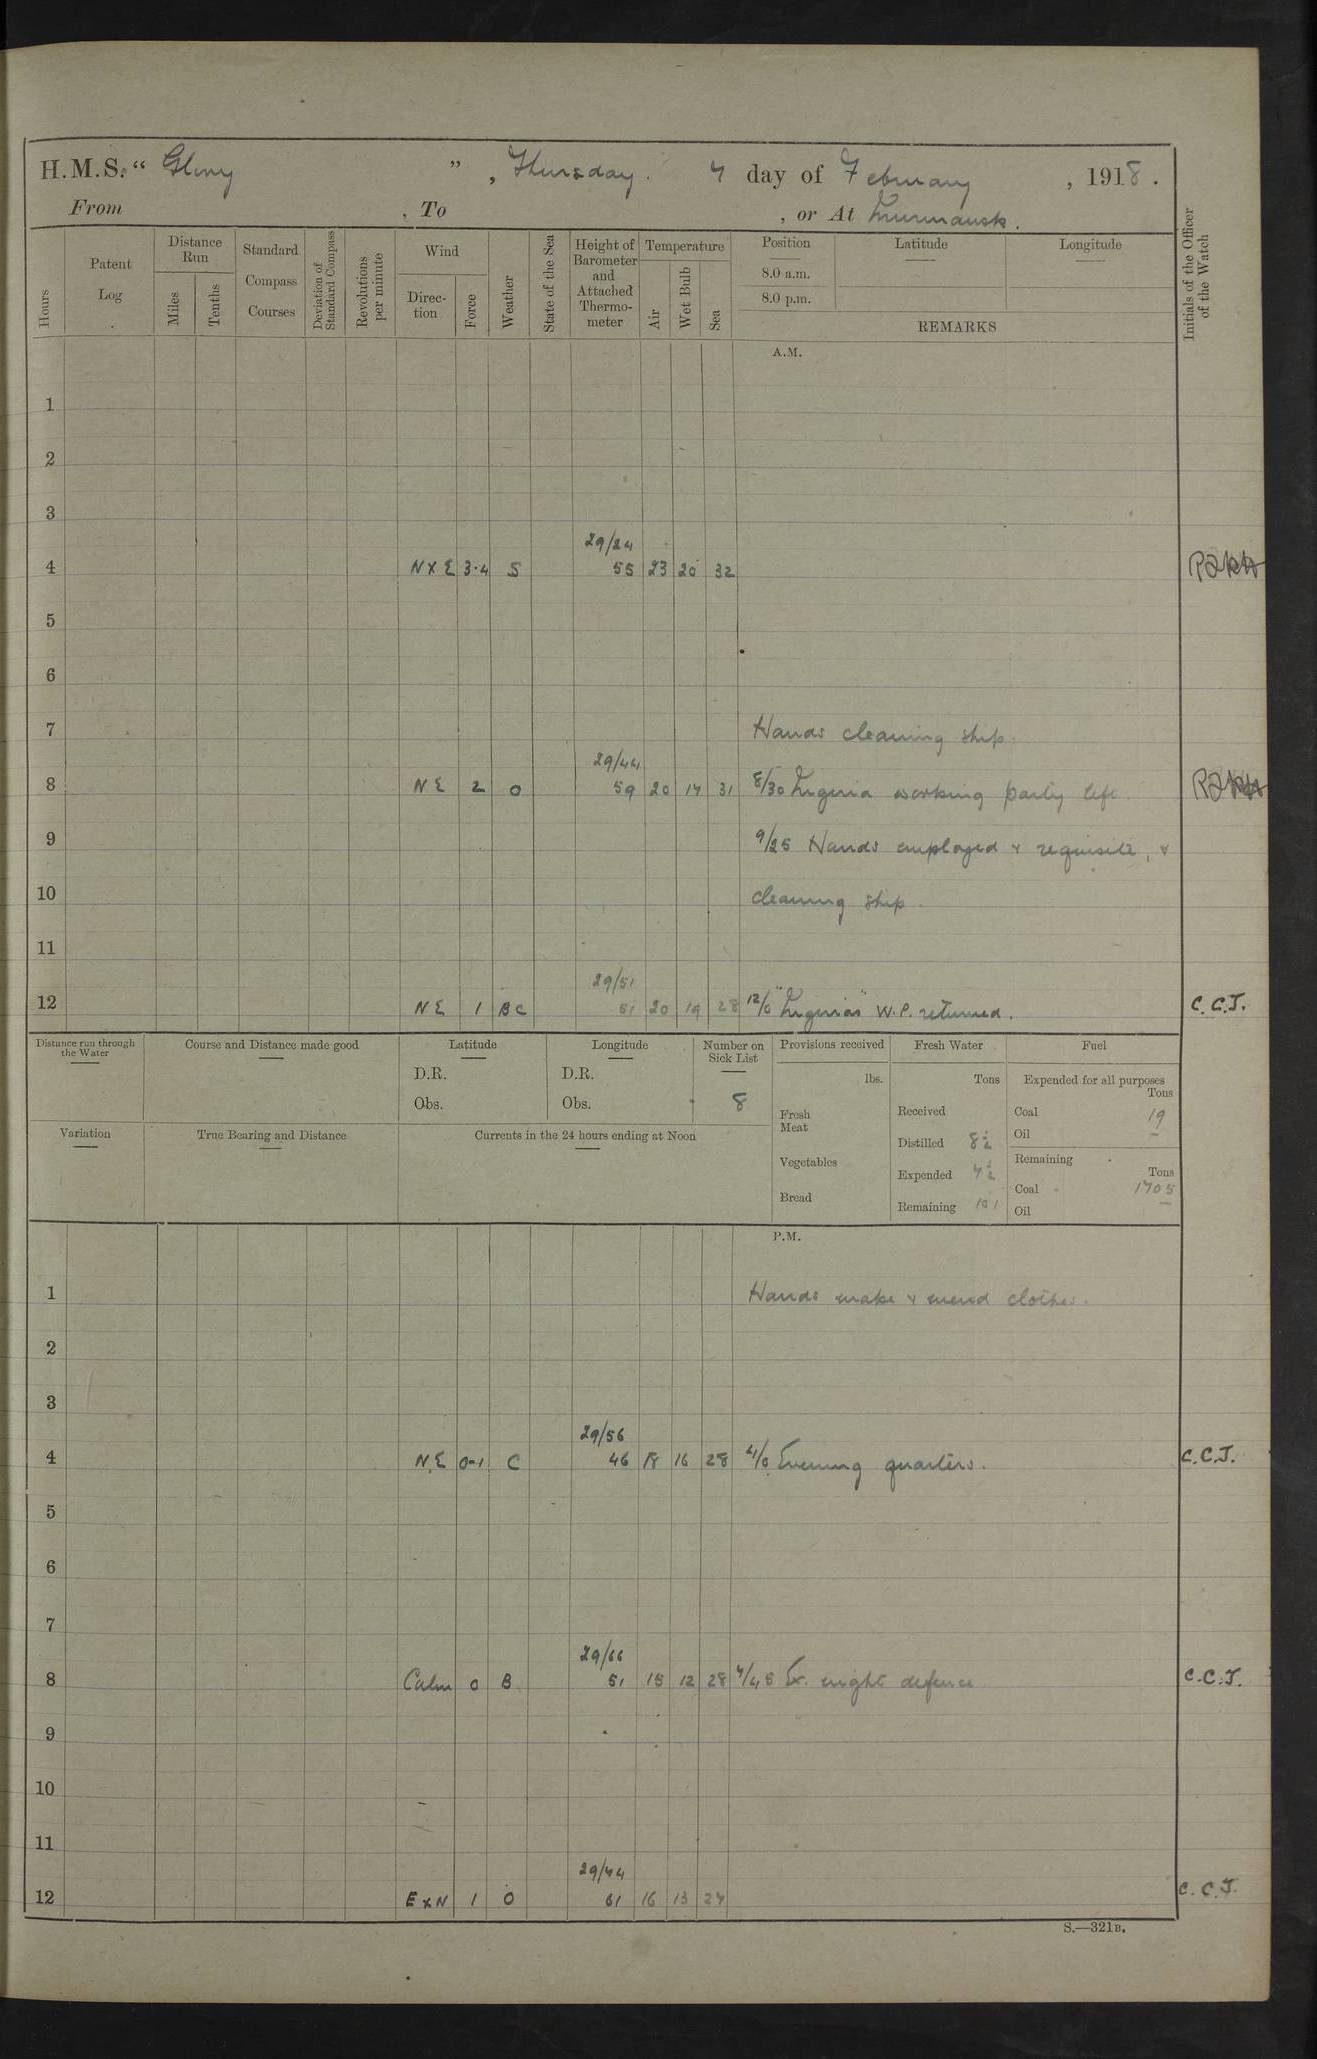 H.M.S. "Glory", Thursday. 7 day of February, 1918.
From , To , or At Murmansk.
Hours
Patent Log
Distance Run
Miles
Tenths
Standard Compass Courses
Deviation of Standard Compass
Revolutions per minute
Wind
Direction
Force
Weather
State of the Sea
Height of Barometer and Attached Thermometer
Temperature
Air
Wet Bulb
Sea
Position
8.0 a.m.
8.0 p.m.
Latitude
Longitude
REMARKS
Initials of the Officer of the Watch
A.M.
1
2
3
29/24
4 N x E 3-4 S 55 23 20 32
5
6
7 Hands cleaning ship.
29/44
8 N E 2 O 59 20 17 31 8/30 working party left
9 9/25 Hands employed & requisite, &
10 cleaning ship.
11
29/51
12 N E 1 B C 51 20 19 28 12/0 W.P. returned. C.C.J.
Distance run through the Water
Course and Distance made good
Latitude
D.R.
Obs.
Longitude
D.R.
Obs.
Number on Sick List
8
Provisions received
lbs.
Fresh Meat
Vegetables
Bread
Fresh Water
Tons
Received
Distilled 8½
Expended 7½
Remaining 101
Fuel
Expended for all purposes
Tons
Coal 19
Oil –
Remaining
Tons
Coal 1705
Oil –
Variation
True Bearing and Distance
Currents in the 24 hours ending at Noon
P.M.
1 Hands make & mend clothes.
2
3
29/56
4 N.E 0-1 C 46 18 16 28 4/0 Evening quarters. C.C.J.
5
6
7
29/66
8 Calm 0 B 51 15 12 28 7/45 Ex. night defence C.C.J.
9
10
11
29/74
12 E x N 1 O 61 16 13 27 C.C.J.
S.—321B.